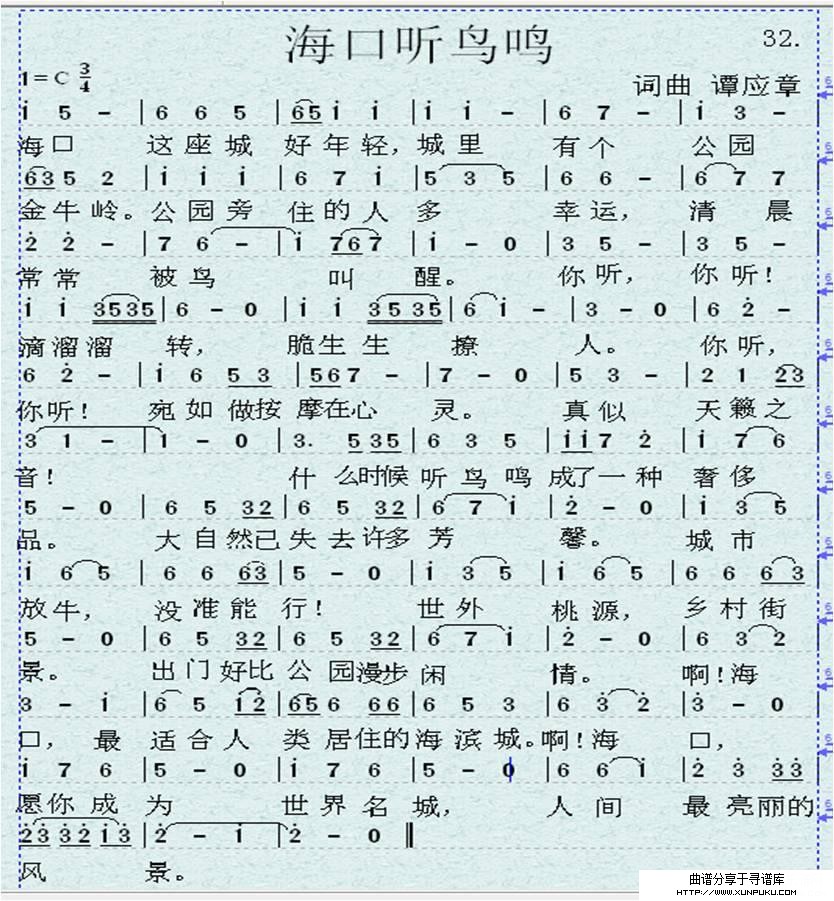 海口听鸟鸣
32.
1=C 3/4
词曲 谭应章
i 5 - | 6 6 5 | 65 i i | i i - | 6 7 - | i 3 -
海口 这座城 好年轻，城里 有个 公园
63 5 2 | i i i | 6 7 i | 5 3 5 | 6 6 - | 6 7 7
金牛岭。公园旁 住的人 多 幸运， 清 晨
2̇ 2̇ - | 7 6 - | i 767 | i - 0 | 3 5 - | 3 5 -
常常 被鸟 叫 醒。 你听， 你听！
i i 3535 | 6 - 0 | i i 3535 | 6 i - | 3 - 0 | 6 2̇ -
滴溜溜 转， 脆生生 撩 人。 你听，
6 2̇ - | i 6 5 3 | 567 - | 7 - 0 | 5 3 - | 2 1 23
你听！ 宛如做按 摩在心 灵。 真似 天籁之
3 1 - | 1 - 0 | 3. 5 35 | 6 3 5 | ii7 2̇ | i 7 6
音！ 什么时候 听鸟鸣 成了一种 奢侈
5 - 0 | 6 5 32 | 6 5 32 | 6 7 i | 2̇ - 0 | i 3 5
品。 大自然已 失去许多 芳 馨。 城市
i 6 5 | 6 6 63 | 5 - 0 | i 3 5 | i 6 5 | 6 6 6 3
放牛， 没准能 行！ 世外 桃源， 乡村街
5 - 0 | 6 5 32 | 6 5 32 | 6 7 i | 2̇ - 0 | 6 3 2
景。 出门好比 公园漫步 闲 情。 啊！海
3 - i | 6 5 i2̇ | 656 66 | 6 5 3 | 6 3̇ 2̇ | 3̇ - 0
口， 最 适合人 类居住的 海滨城。啊！海 口，
i 7 6 | 5 - 0 | i 7 6 | 5 - 0 | 6 6 i | 2̇ 3̇ 3̇3̇
愿你成 为 世界名 城， 人间 最亮丽的
2̇3̇ 3̇2̇ i3̇ | 2̇ - i | 2̇ - 0 ‖
风 景。
曲谱分享于寻谱库
HTTP://WWW.XUNPUKU.COM